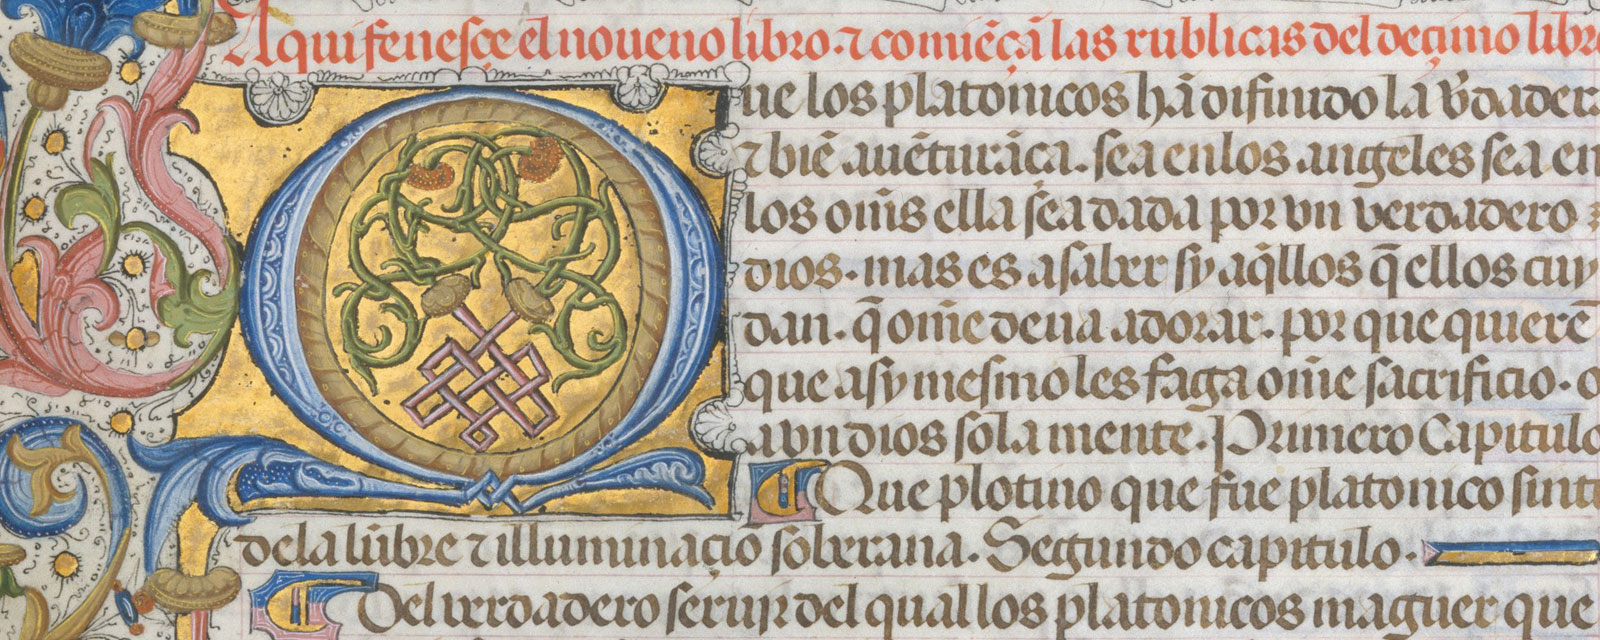 Aqui fenesçe el noueno libro · ⁊ comiēçā las rublicas del deçimo libr
Que los platonicos hā difinido la v̄dadera
⁊ biē auēturāça · sea en los angeles sea en
los om̄s ella sea dada por vn verdadero
dios · mas es a saber sy aq̄llos q̄ ellos cuy
dan · q̄ om̄e deua adorar · por que quierē
que asy mesmo les faga om̄e sacrificio · o
a vn dios sola mente · Primero Capitulo
Que plotino que fue platonico sinti
de la lūbre ⁊ illuminaçiō soberana · Segundo capitulo ·
Del verdadero seruir del qual los platonicos maguer que